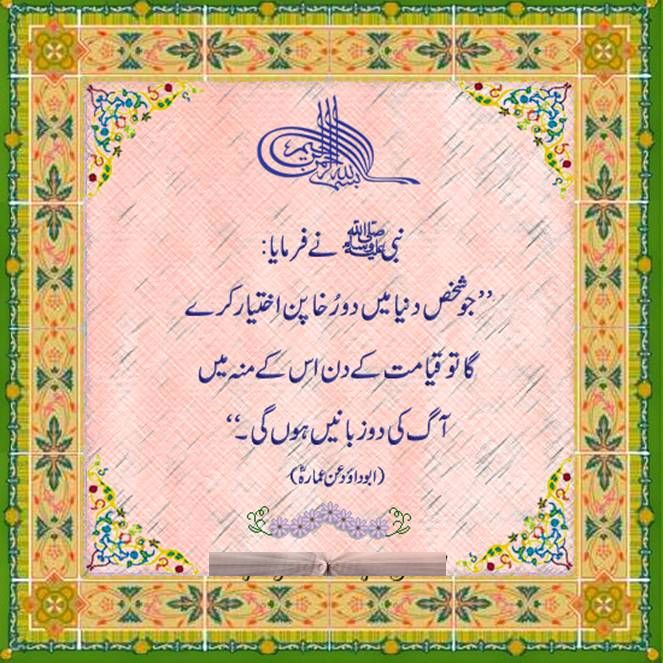 بسم الله الرحمن الرحيم
نبی ﷺ نے فرمایا:
”جو شخص دنیا میں دورُخا پن اختیار کرے
گا تو قیامت کے دن اس کے منہ میں
آگ کی دو زبانیں ہوں گی۔“
(ابوداؤد عن عمارہؓ)